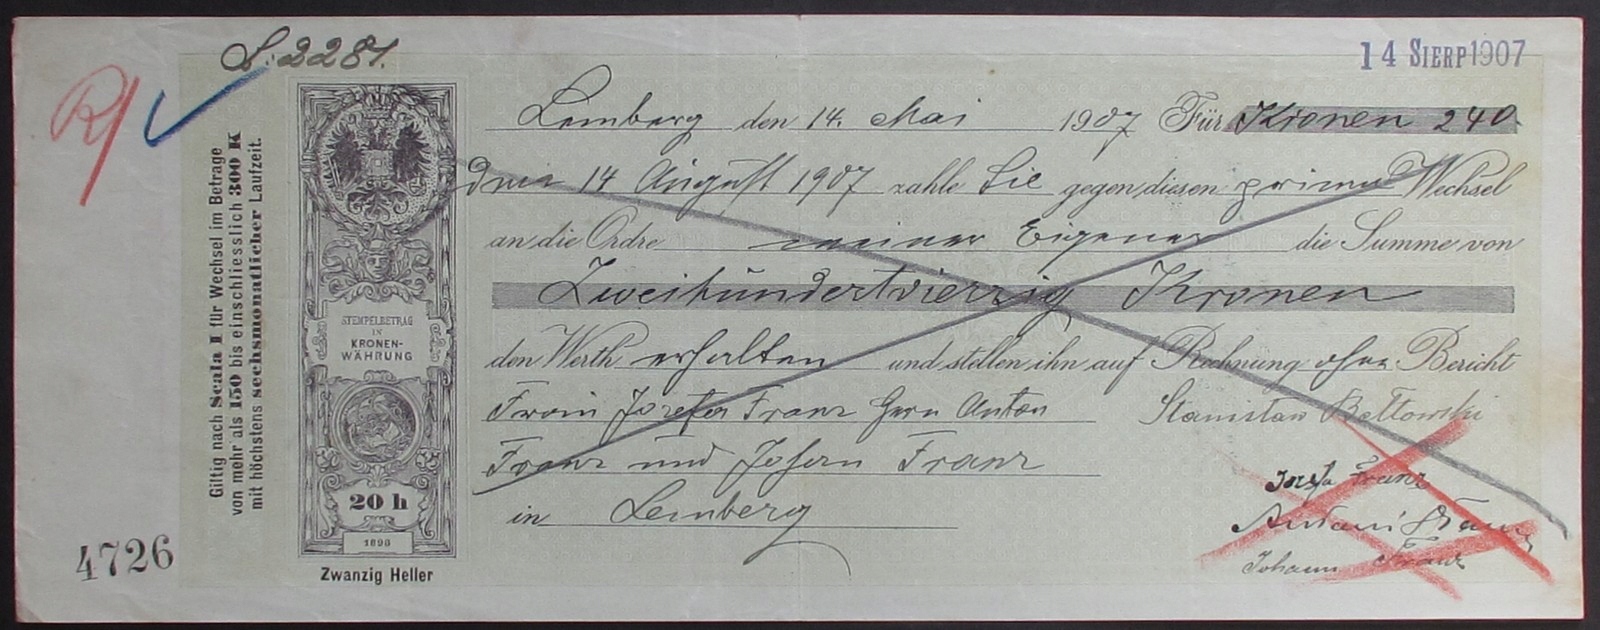 S. 2281.
14 SIERP 1907
R/
Giltig nach Scala I für Wechsel im Betrage
von mehr als 150 bis einschliesslich 300 K
mit höchstens sechsmonatlicher Laufzeit.
4726
STEMPELBETRAG
IN
KRONEN-
WÄHRUNG
20 h
1898
Zwanzig Heller
Lemberg den 14. Mai 1907 Für Kronen 240.
14 August 1907 zahle Sie gegen diesen prima Wechsel
an die Ordre meiner Eigenen die Summe von
Zweihundertvierzig Kronen
den Werth erhalten und stellen ihn auf Rechnung ohne Bericht
Josefa Franz Anton Stanislaw Bełtowski
Franz und Johann Franz
in Lemberg
Josefa Franz
Antoni Franz
Johann Franz